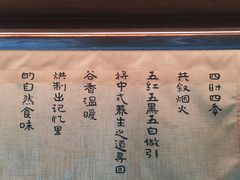 四时四季
共叙烟火
五红五黑五白做引
将中式养生之道寻回
谷香温暖
烘制出记忆里
的自然食味